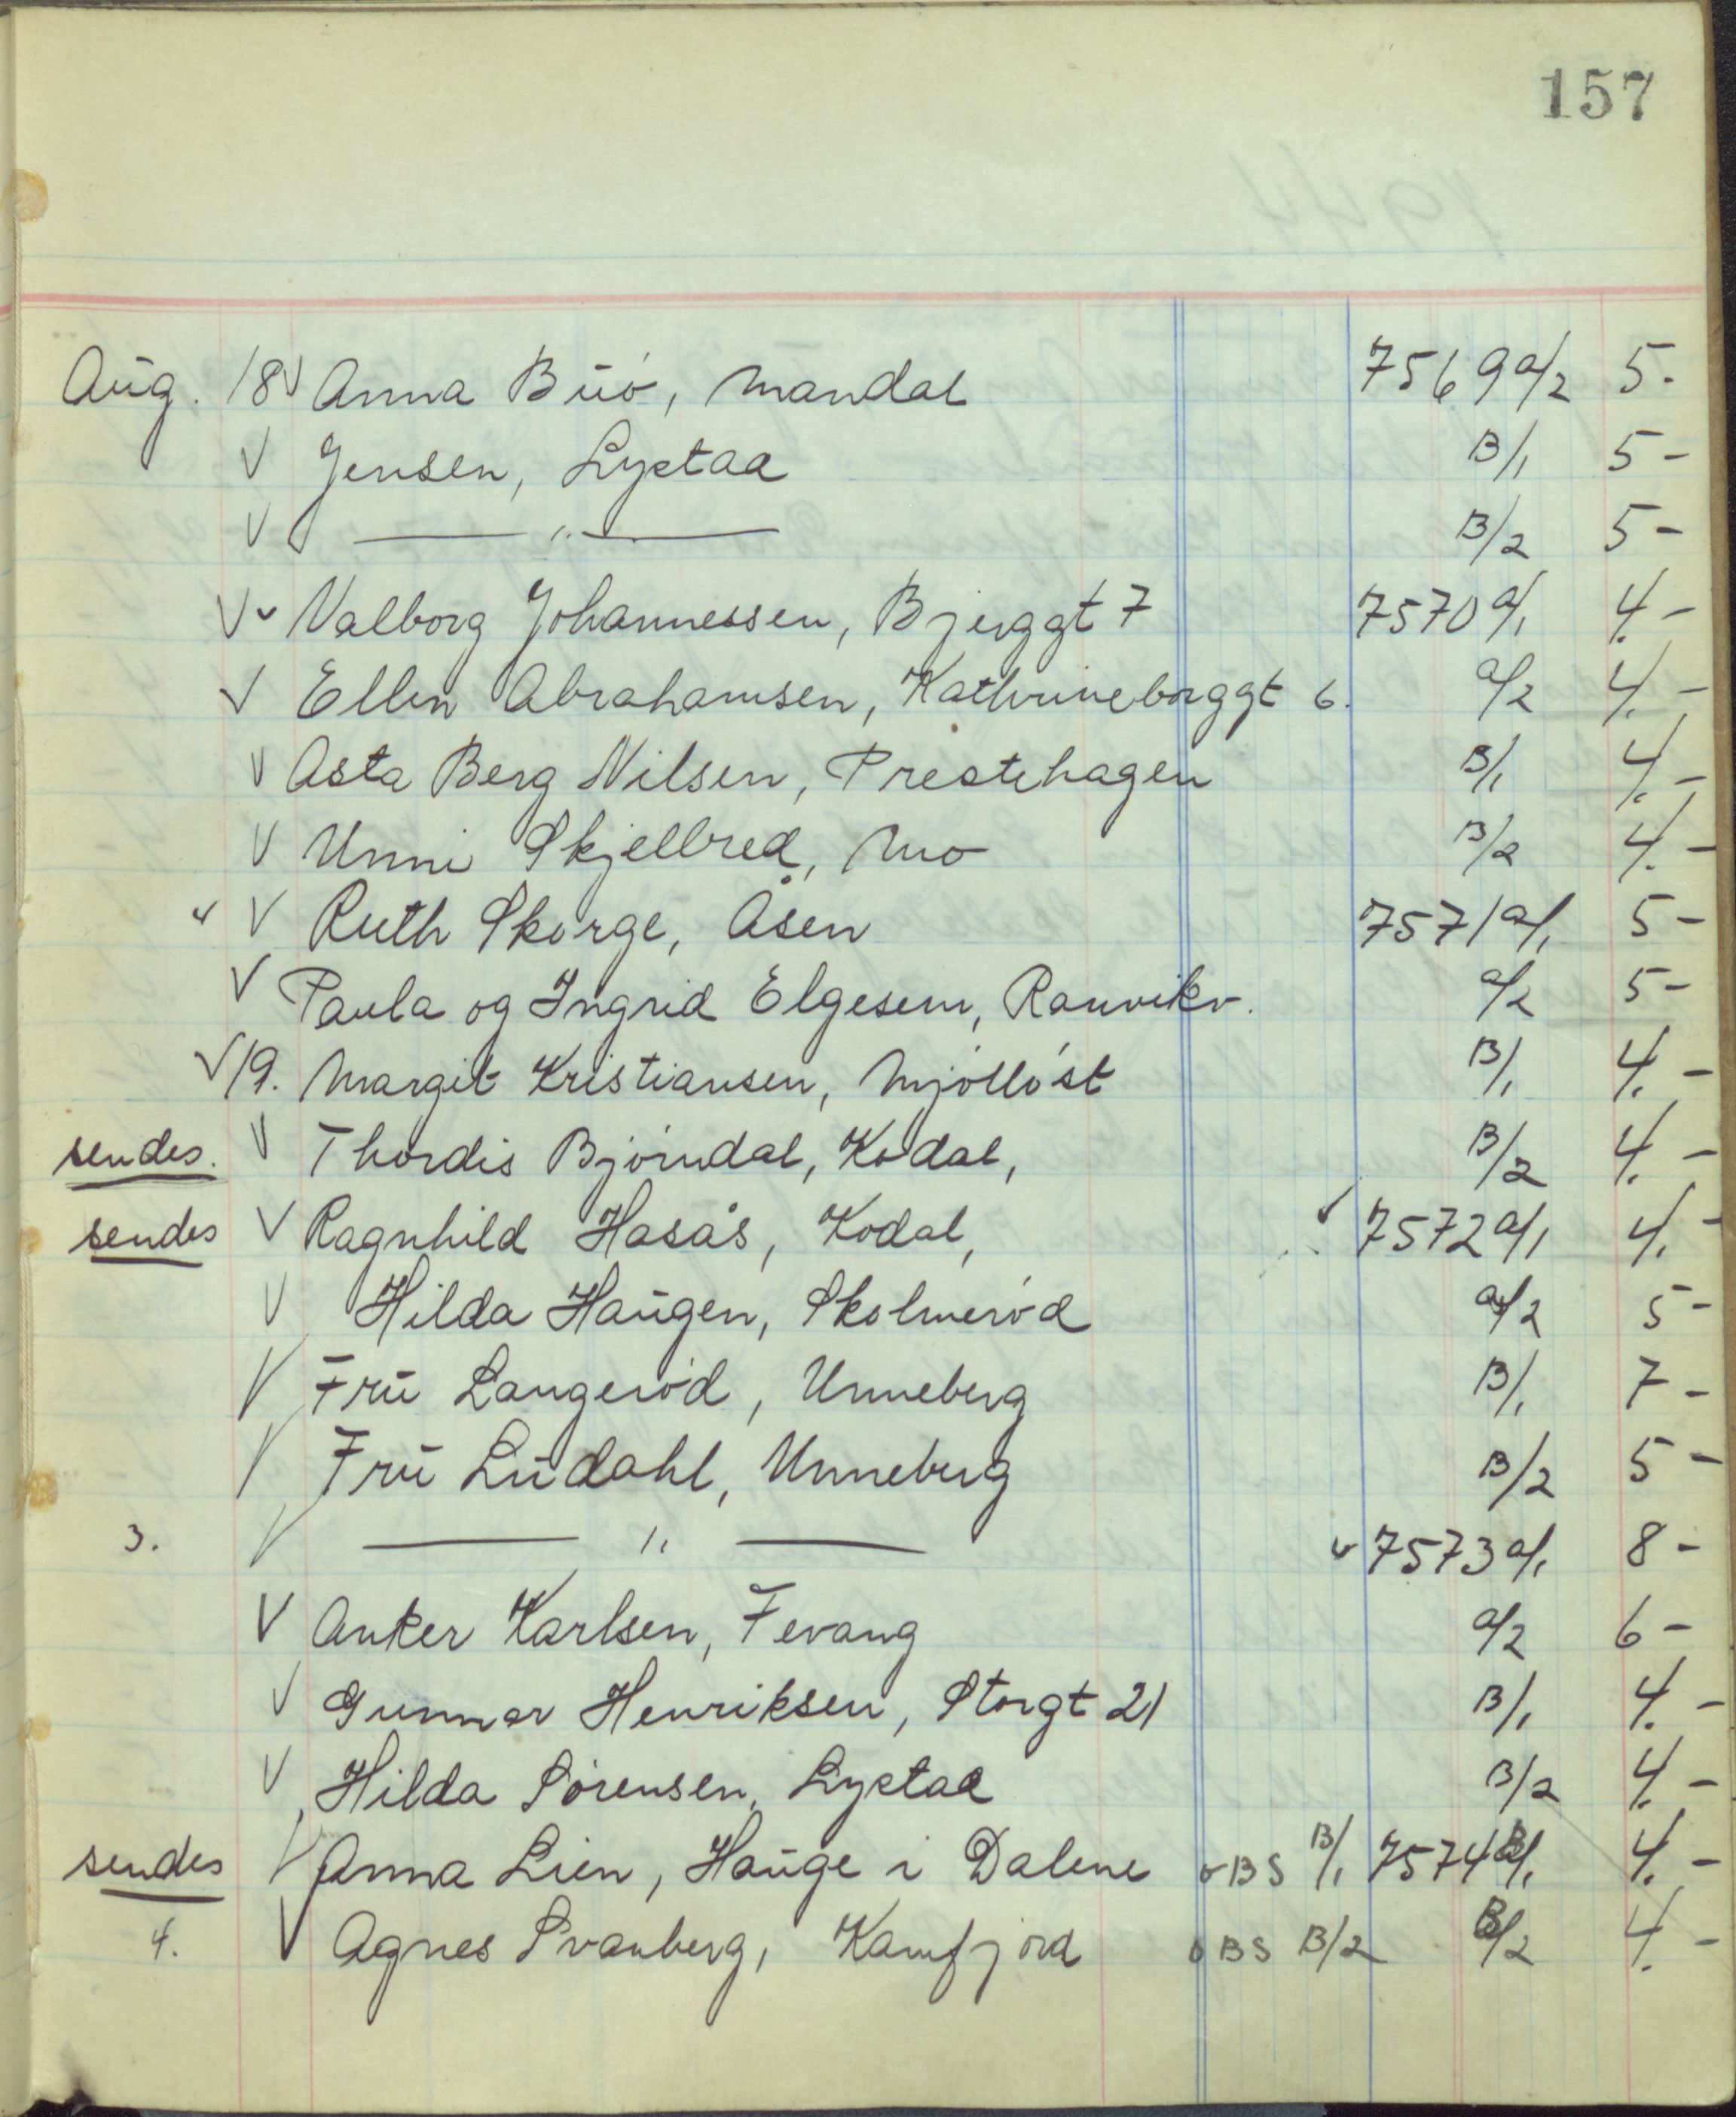 157
Aug. 18 V Anna Buó, Mandal 7569 a/2 5.
V Jensen, Lystad B/1 5 -
V — " — B/2 5 -
V v Valborg Johannessen, Bjerggt 7 7570 a/1 4. -
V Ellen Abrahamsen, Kathrineborggt 6. a/2 4. -
V Asta Berg Nilsen, Prestehagen B/1 4. -
V Unni Skjelbred, Mo B/2 4. -
v V Ruth Skorge, Åsen 7571 a/1 5 -
V Paula og Ingrid Elgesem, Ranvikv. a/2 5 -
V 19. Margit Kristiansen, Mjølløst B/1 4. -
sendes. V Thordis Bjørndal, Kodal, B/2 4. -
sendes V Ragnhild Hasås, Kodal, v 7572 a/1 4. -
V Hilda Haugen, Skolmerød a/2 5 -
V Fru Langerød, Unneberg B/1 7 -
V Fru Lindahl, Unneberg B/2 5 -
3. V — " — v 7573 a/1 8 -
V Anker Karlsen, Fevang a/2 6 -
V Gunnar Henriksen, Storgt 21 B/1 4. -
V Hilda Sørensen, Lystad B/2 4. -
sendes V Anna Lien, Hauge i Dalene OBS B/1 7574 B/1 4. -
4. V Agnes Svanberg, Kamfjord OBS B/2 B/2 4. -